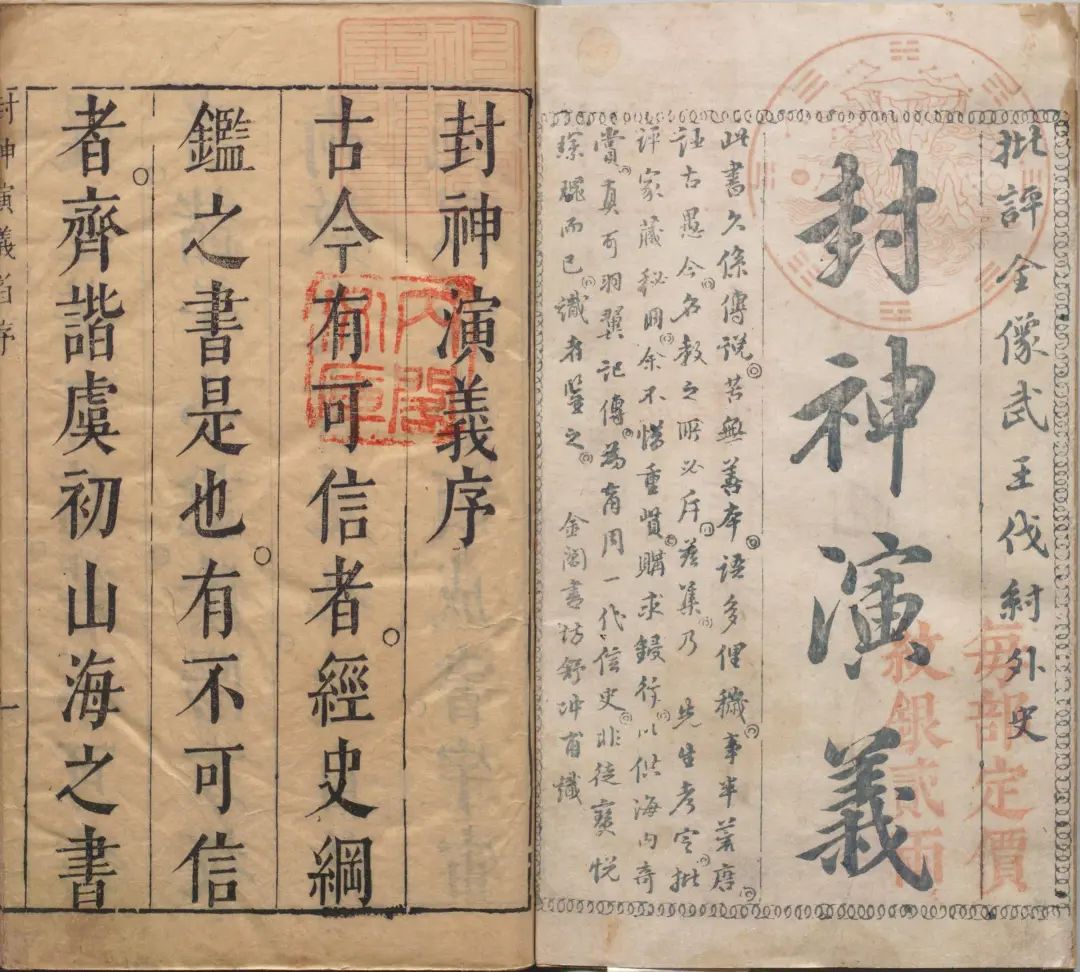 批評全像武王伐紂外史
封神演義
每部定價
紋銀貳兩
此書久係傳說苦無善本語多俚穢事半荒唐
誣古愚今名教之所必斥茲集乃 先生考定批
評家藏秘冊余不惜重貲購求鋟行以供海內奇
賞真可羽翼記傳為商周一代信史非徒寶悅
琛瑰而已識者鑒之 金閶書坊舒冲甫識
封神演義序
古今有可信者經史綱
鑑之書是也有不可信
者齊諧虞初山海之書
內閣文庫
封神演義 序 一